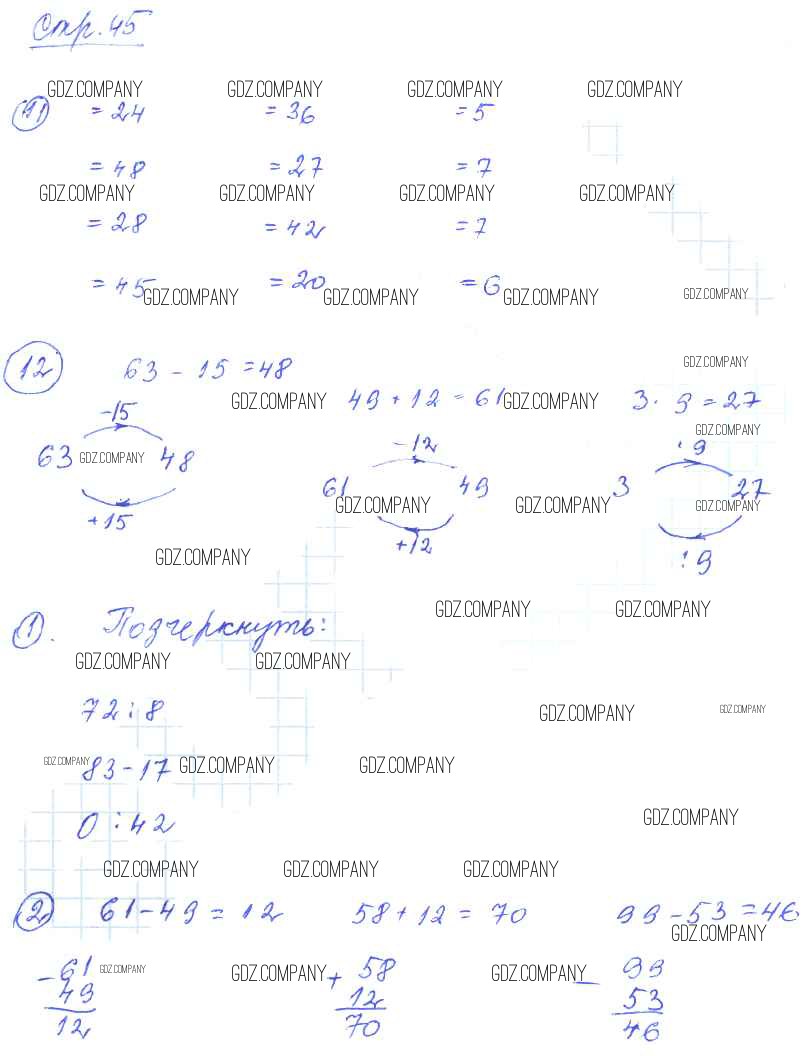 Стр. 45
GDZ.COMPANY GDZ.COMPANY GDZ.COMPANY GDZ.COMPANY
11 = 24 = 36 = 5
= 48 = 27 = 7
GDZ.COMPANY GDZ.COMPANY GDZ.COMPANY GDZ.COMPANY
= 28 = 42 = 7
= 45 = 20 = 6
GDZ.COMPANY GDZ.COMPANY GDZ.COMPANY GDZ.COMPANY
12 63 - 15 = 48
GDZ.COMPANY
49 + 12 = 61 3 · 9 = 27
GDZ.COMPANY GDZ.COMPANY
-15 GDZ.COMPANY
-12 · 9
63 GDZ.COMPANY 48
61 49 3 27
GDZ.COMPANY GDZ.COMPANY GDZ.COMPANY
+15
+12 : 9
GDZ.COMPANY
GDZ.COMPANY GDZ.COMPANY
1. Подчеркнуть:
GDZ.COMPANY GDZ.COMPANY
72 : 8
GDZ.COMPANY GDZ.COMPANY
83 - 17
GDZ.COMPANY GDZ.COMPANY GDZ.COMPANY
0 : 42
GDZ.COMPANY
GDZ.COMPANY GDZ.COMPANY GDZ.COMPANY
2 61 - 49 = 12 58 + 12 = 70 99 - 53 = 46
GDZ.COMPANY
- 61 + 58 - 99
GDZ.COMPANY GDZ.COMPANY GDZ.COMPANY
49 12 53
12 70 46